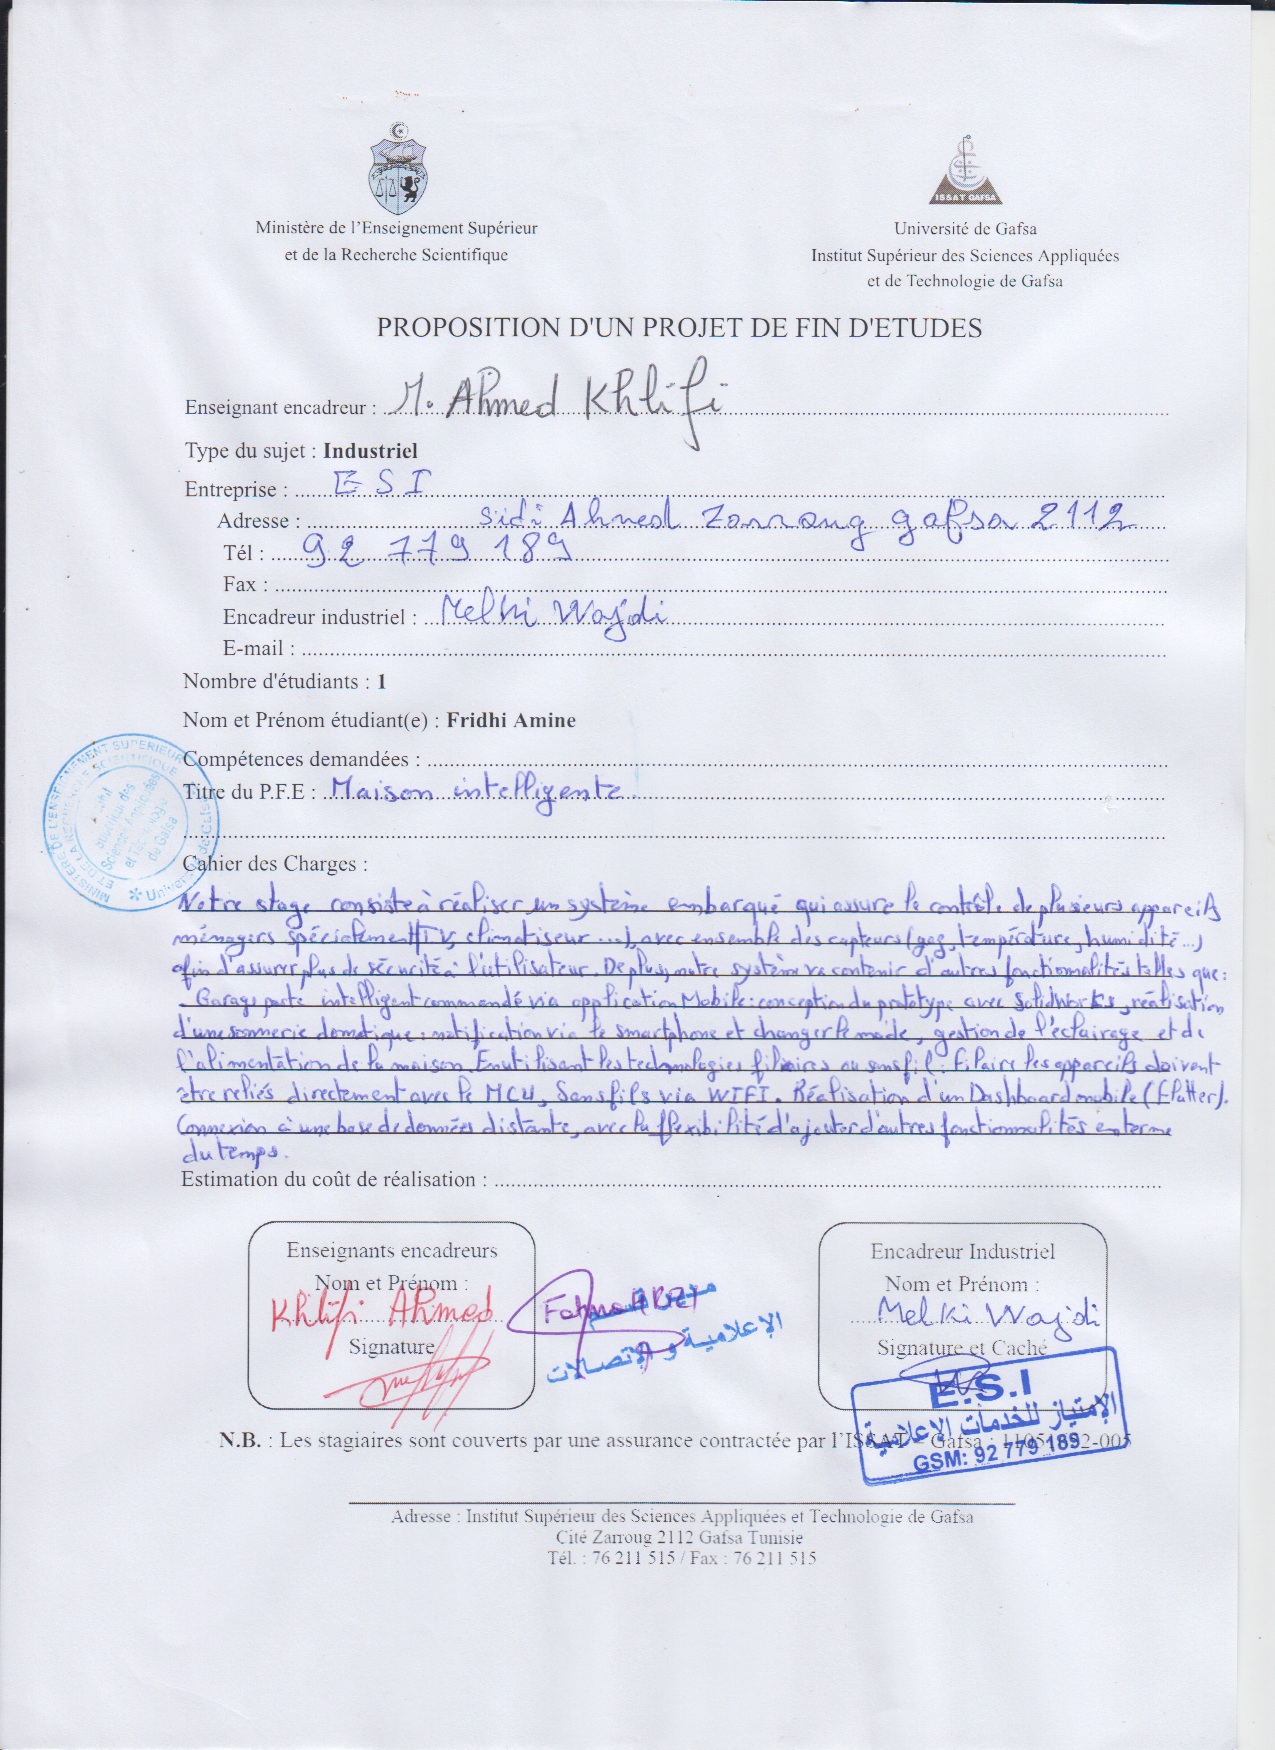 ISSAT GAFSA
Ministère de l'Enseignement Supérieur
et de la Recherche Scientifique
Université de Gafsa
Institut Supérieur des Sciences Appliquées
et de Technologie de Gafsa
PROPOSITION D'UN PROJET DE FIN D'ETUDES
Enseignant encadreur : M. Ahmed Khlifi
Type du sujet : Industriel
Entreprise : E S I
Adresse : Sidi Ahmed Zarroug gafsa 2112
Tél : 92 779 189
Fax :
Encadreur industriel : Melki Wajdi
E-mail :
Nombre d'étudiants : 1
Nom et Prénom étudiant(e) : Fridhi Amine
Compétences demandées :
Titre du P.F.E : Maison intelligente.
Cahier des Charges :
Notre stage consiste à réaliser un système embarqué qui assure le contrôle de plusieurs appareils
ménagers spécialement (TV, climatiseur ...), avec ensemble des capteurs (gaz, température, humidité...)
afin d'assurer plus de sécurité à l'utilisateur. De plus, notre système va contenir d'autres fonctionnalités telles que :
- Garage porte intelligent commandé via application Mobile : conception du prototype avec SolidWorks, réalisation
d'une sonnerie domotique : notification via le smartphone et changer le mode, gestion de l'éclairage et de
l'alimentation de la maison. En utilisant les technologies filiaires ou sans fil : Filaire les appareils doivent
être reliés directement avec le MCU, Sans fils via WIFI. Réalisation d'un Dashboard mobile (Flutter).
Connexion à une base de données distante, avec la flexibilité d'ajouter d'autres fonctionnalités en terme
du temps.
Estimation du coût de réalisation :
Enseignants encadreurs
Nom et Prénom :
Khlifi Ahmed
Signature
الإعلامية و الإتصالات
Encadreur Industriel
Nom et Prénom :
Melki Wajdi
Signature et Caché
E.S.I
الإمتياز للخدمات الإعلامية
GSM: 92 779 189
N.B. : Les stagiaires sont couverts par une assurance contractée par l'ISSAT - Gafsa :
Adresse : Institut Supérieur des Sciences Appliquées et Technologie de Gafsa
Cité Zarroug 2112 Gafsa Tunisie
Tél. : 76 211 515 / Fax : 76 211 515